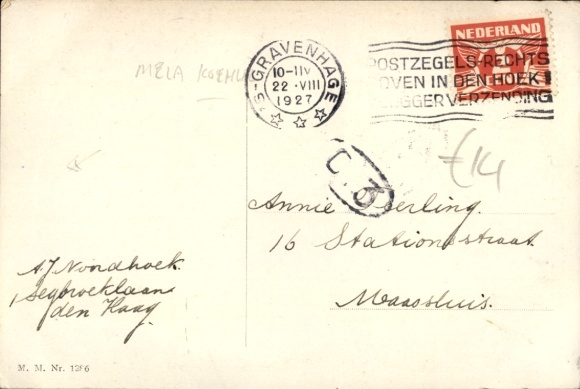 MELA KOEHLER
'S-GRAVENHAGE
10-11V
22.VIII
1927
NEDERLAND
POSTZEGELS RECHTS
BOVEN IN DEN HOEK
VLUGGER VERZENDING
£14
C.3
Annie
16 Stationsstraat
Maassluis.
A.J Noordhoek
1 Segbroeklaan
den Haag.
M. M. Nr. 1286